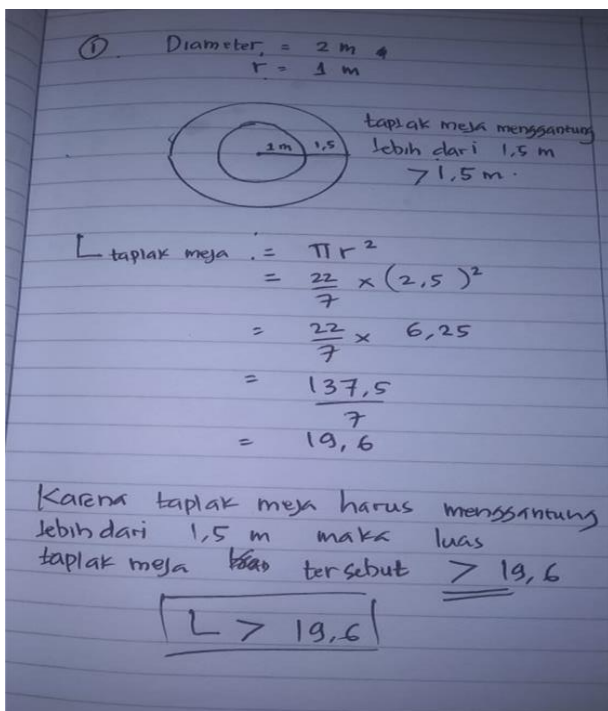 ① Diameter = 2 m
r = 1 m
1 m 1,5
taplak meja menggantung
lebih dari 1,5 m
> 1,5 m.
L taplak meja = πr²
= 22/7 × (2,5)²
= 22/7 × 6,25
= 137,5/7
= 19,6
Karena taplak meja harus menggantung
lebih dari 1,5 m maka luas
taplak meja tersebut > 19,6
L > 19,6